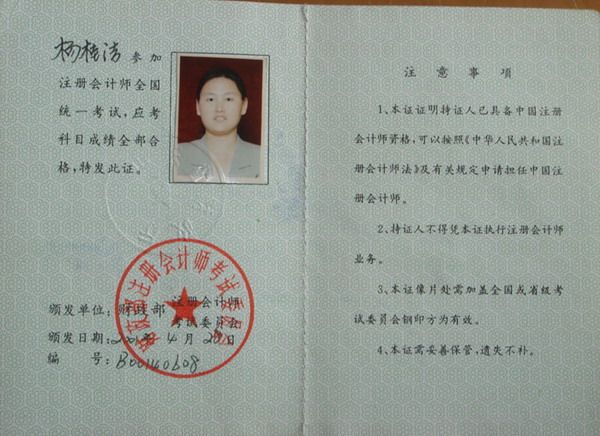 杨桂洁 参加
注册会计师全国
统一考试，应考
科目成绩全部合
格，特发此证。
颁发单位：财政部 注册会计师
考试委员会
颁发日期： 年4月20日
编 号：B00140608
注意事项
1、本证证明持证人已具备中国注册
会计师资格，可以按照《中华人民共和国注
册会计师法》及有关规定申请担任中国注
册会计师。
2、持证人不得凭本证执行注册会计师
业务。
3、本证像片处需加盖全国或省级考
试委员会钢印方为有效。
4、本证需妥善保管，遗失不补。